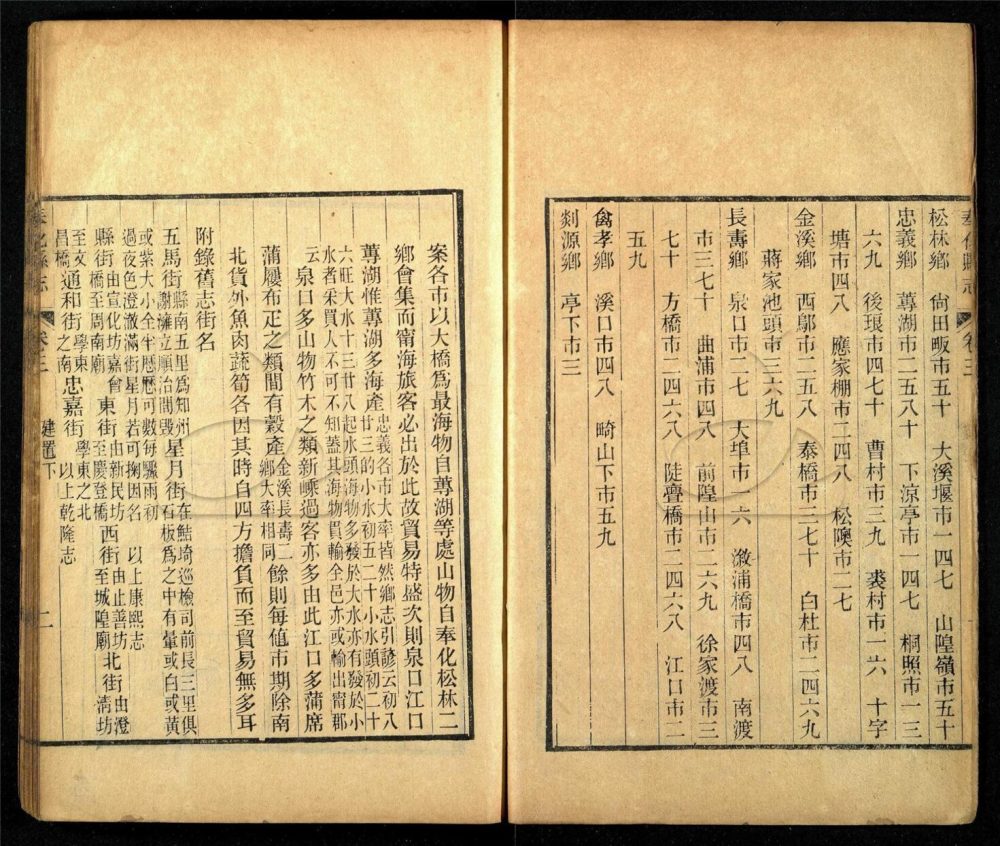 奉化縣志 卷三
松林鄉 尙田畈市五十 大溪堰市一四七 山隍嶺市五十
忠義鄉 蓴湖市二五八十 下涼亭市一四七 桐照市一三
六九 後琅市四七十 曹村市三九 裘村市一六 十字
塘市四八 應家棚市二四八 松隩市二七
金溪鄉 西鄔市二五八 泰橋市三七十 白杜市二四六九
蔣家池頭市三六九
長壽鄉 泉口市二七 大埠市一六 漵浦橋市四八 南渡
市三七十 曲浦市四八 前隍山市二六九 徐家渡市三
七十 方橋市二四六八 陡亹橋市二四六八 江口市二
五九
禽孝鄉 溪口市四八 畸山下市五九
剡源鄉 亭下市三
案各市以大橋爲最海物自蓴湖等處山物自奉化松林二
鄉會集而甯海旅客必出於此故貿易特盛次則泉口江口
蓴湖惟蓴湖多海產忠義各市大率皆然鄉志引諺云初八
廿三的小水初五二十小水頭初二十
六旺大水十三廿八起水頭海物多發於大水亦有發於小
水者采買人不可不知蓋其海物貫輸全邑亦或輸出甯郡
云泉口多山物竹木之類新嵊過客亦多由此江口多蒲席
蒲屨布疋之類間有穀產金溪長壽二
鄉大率相同餘則每値市期除南
北貨外魚肉蔬筍各因其時自四方擔負而至貿易無多耳
附錄舊志街名
五馬街縣南五里爲知州
謝濰立順治間毀星月街在鮚埼巡檢司前長三里俱
石板爲之中有暈或白或黃
或紫大小全半歷歷可數每驟雨初
過夜色澄澈滿街星月若可掬因名 以上康熙志
縣前街由宣化坊嘉會
橋至周南廟東街由新民坊
至慶登橋西街由止善坊
至城隍廟北街由澄
淸坊
至文
昌橋通和街學東
之南忠嘉街學東之北
以上乾隆志
奉化縣志 卷三 建置下 二